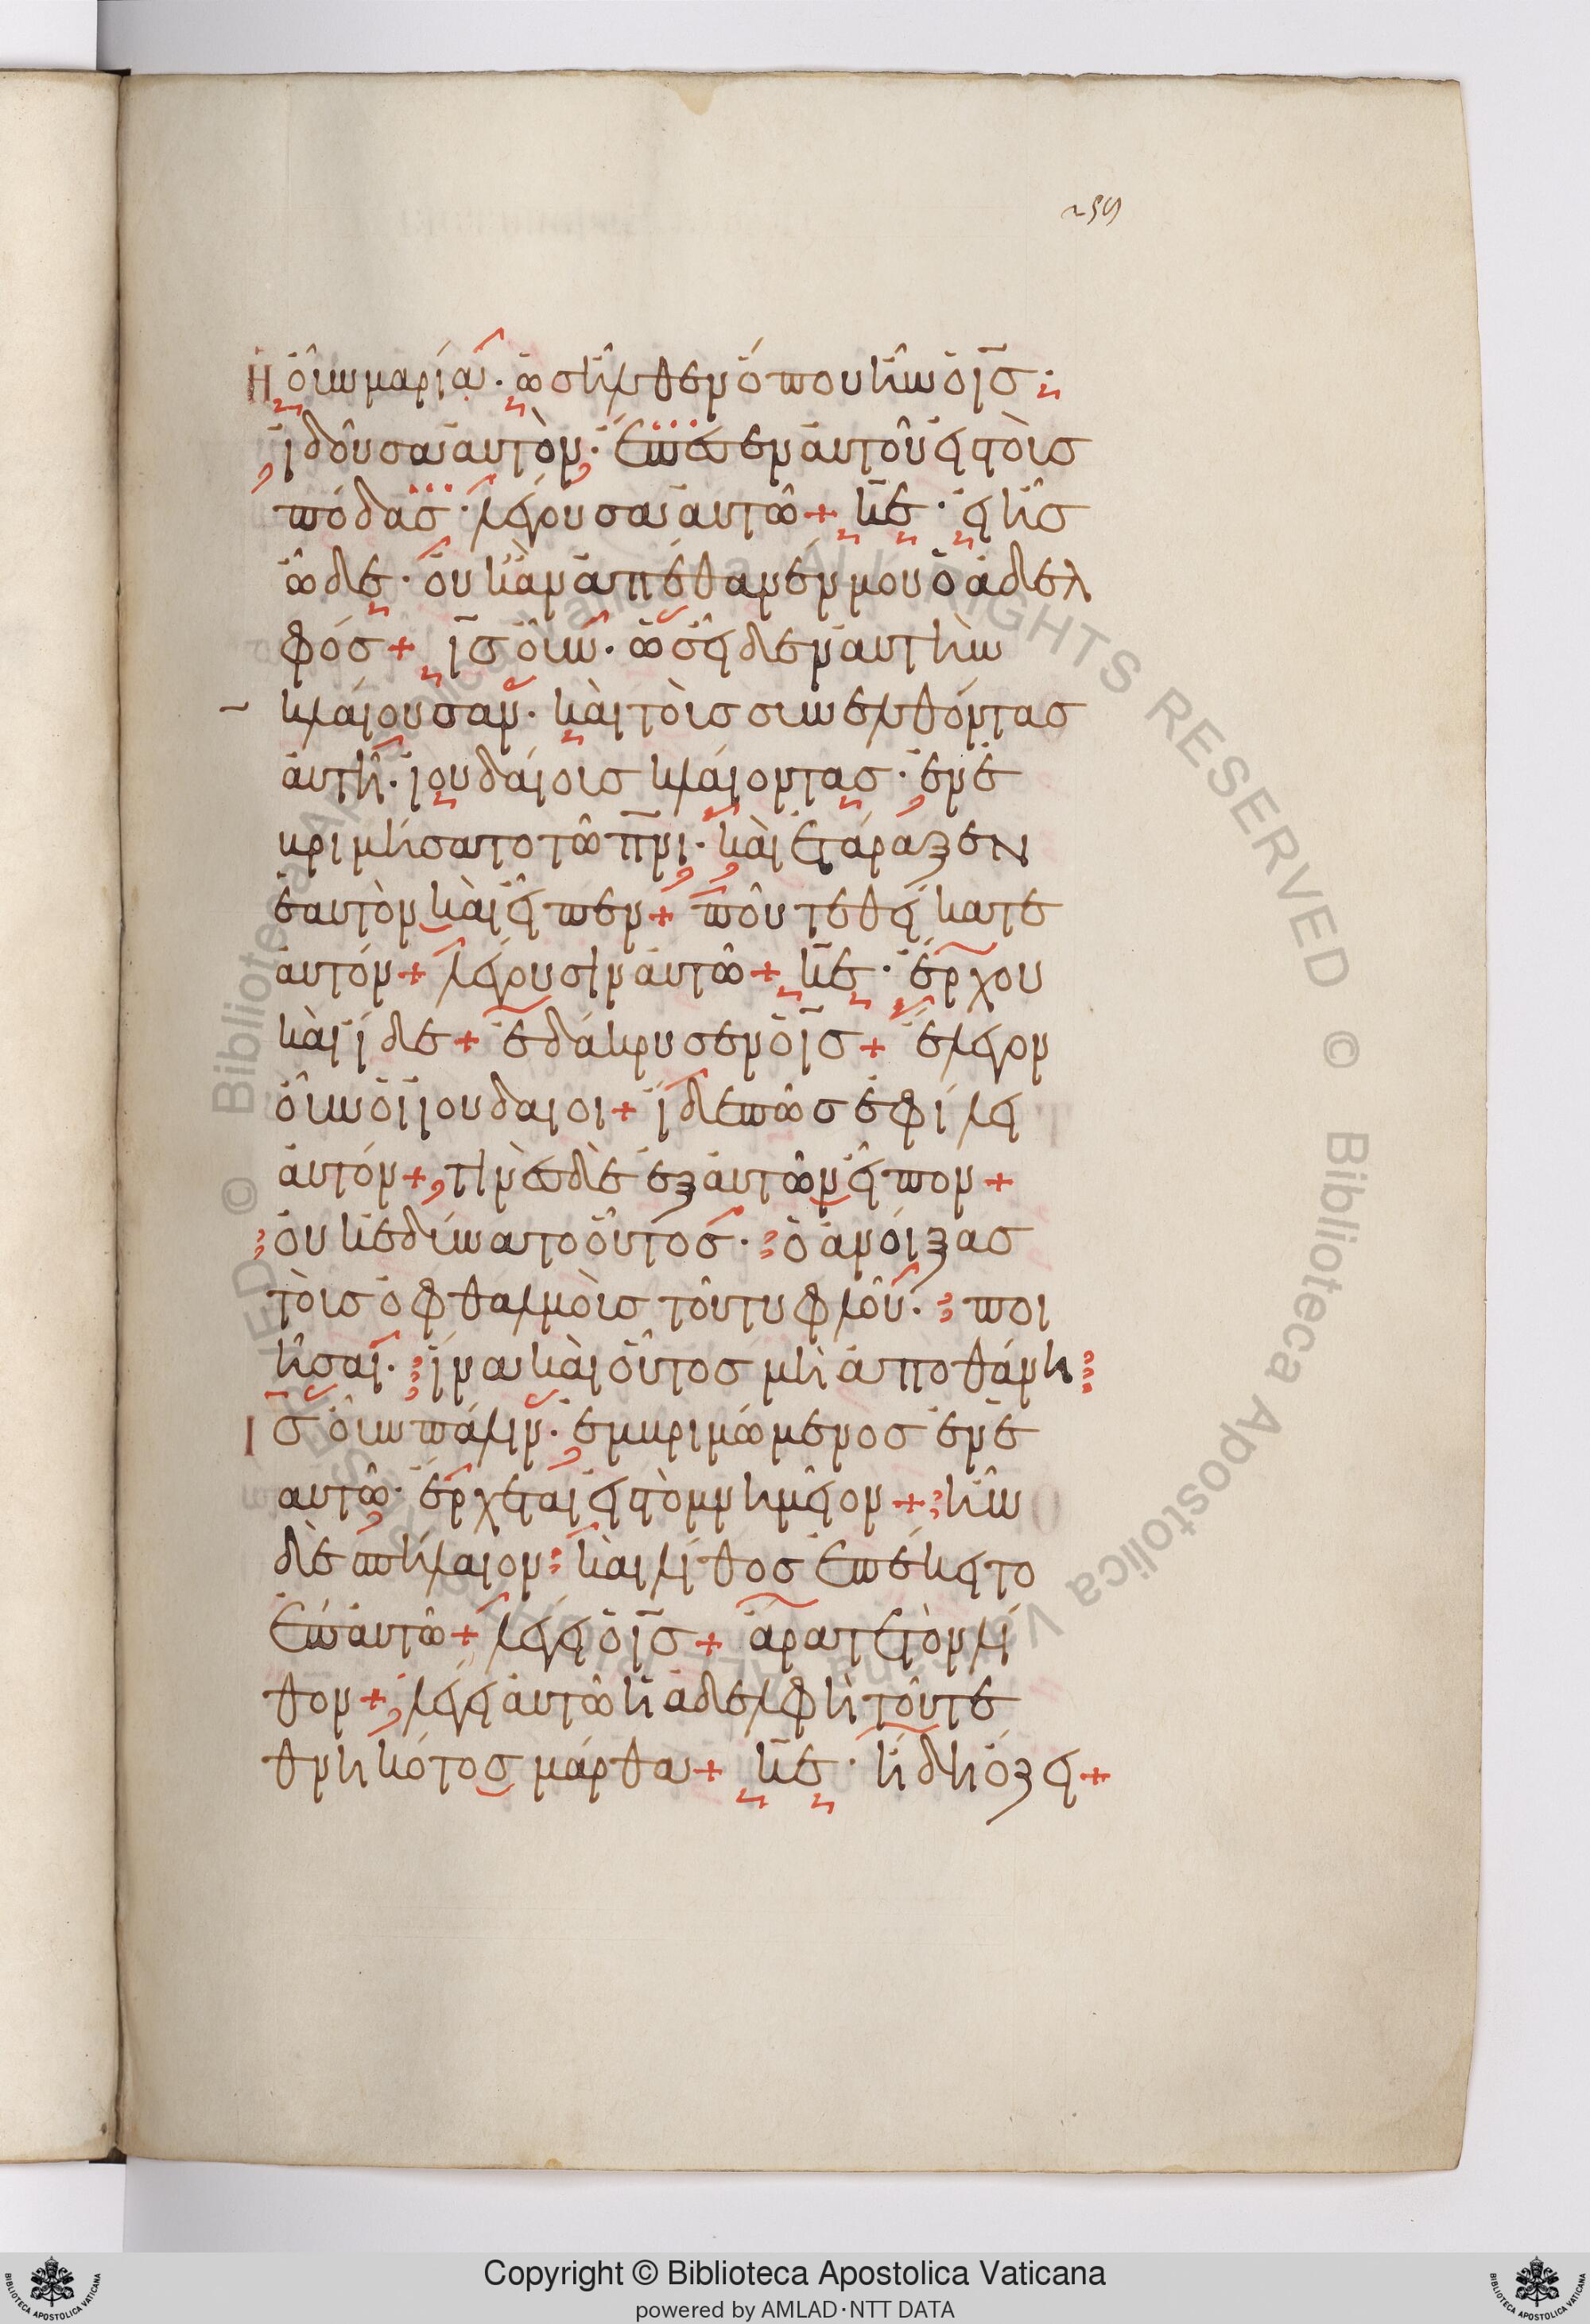 259
Ἡ οὖν μαρία· ὡς ἦλθεν ὅπου ἦν ὁ ι̅ς̅·
ἰδοῦσα αὐτὸν· ἔπεσεν αὐτοῦ εἰς τοὺς
πόδας· λέγουσα αὐτῶ + κ̅ε̅· εἰ ἦς
ὧδε· οὐκ ἂν ἀπέθανέν μου ὁ ἀδελ
φός + ι̅ς̅ οὖν· ὡς εἶδεν αὐτὴν
κλαίουσαν· καὶ τοὺς συνελθόντας
αὐτῆ· ἰουδαίους κλαίοντας· ἐνε
βριμήσατο τῶ π̅ν̅ι̅· καὶ ἐτάραξεν
ἑαυτὸν καὶ εἶπεν + ποῦ τεθείκατε
αὐτόν + λέγουσιν αὐτῶ + κ̅ε̅· ἔρχου
καὶ ἴδε + ἐδάκρυσεν ὁ ι̅ς̅ + ἔλεγον
οὖν οἱ ἰουδαῖοι + ἴδε πῶς ἐφίλει
αὐτόν + τινὲς δὲ ἐξ αὐτῶν εἶπον +
οὐκ ἐδύνατο οὗτος· ὁ ἀνοίξας
τοὺς ὀφθαλμοὺς τοῦ τυφλοῦ· ποι
ῆσαι· ἵνα καὶ οὗτος μὴ ἀποθάνη
Ι̅ς̅ οὖν πάλιν· ἐμβριμώμενος ἐν ἑ
αυτῶ· ἔρχεται εἰς τὸ μνημεῖον + ἦν
δὲ σπήλαιον: καὶ λίθος ἐπέκειτο
ἐπ' αὐτῶ + λέγει ὁ ι̅ς̅ + ἄρατε τὸν λί
θον + λέγει αὐτῶ ἡ ἀδελφὴ τοῦ τε
θνηκότος μάρθα + κ̅ε̅· ἤδη ὄζει +
© Biblioteca Apostolica Vaticana ALL RIGHTS RESERVED
Copyright © Biblioteca Apostolica Vaticana
powered by AMLAD·NTT DATA